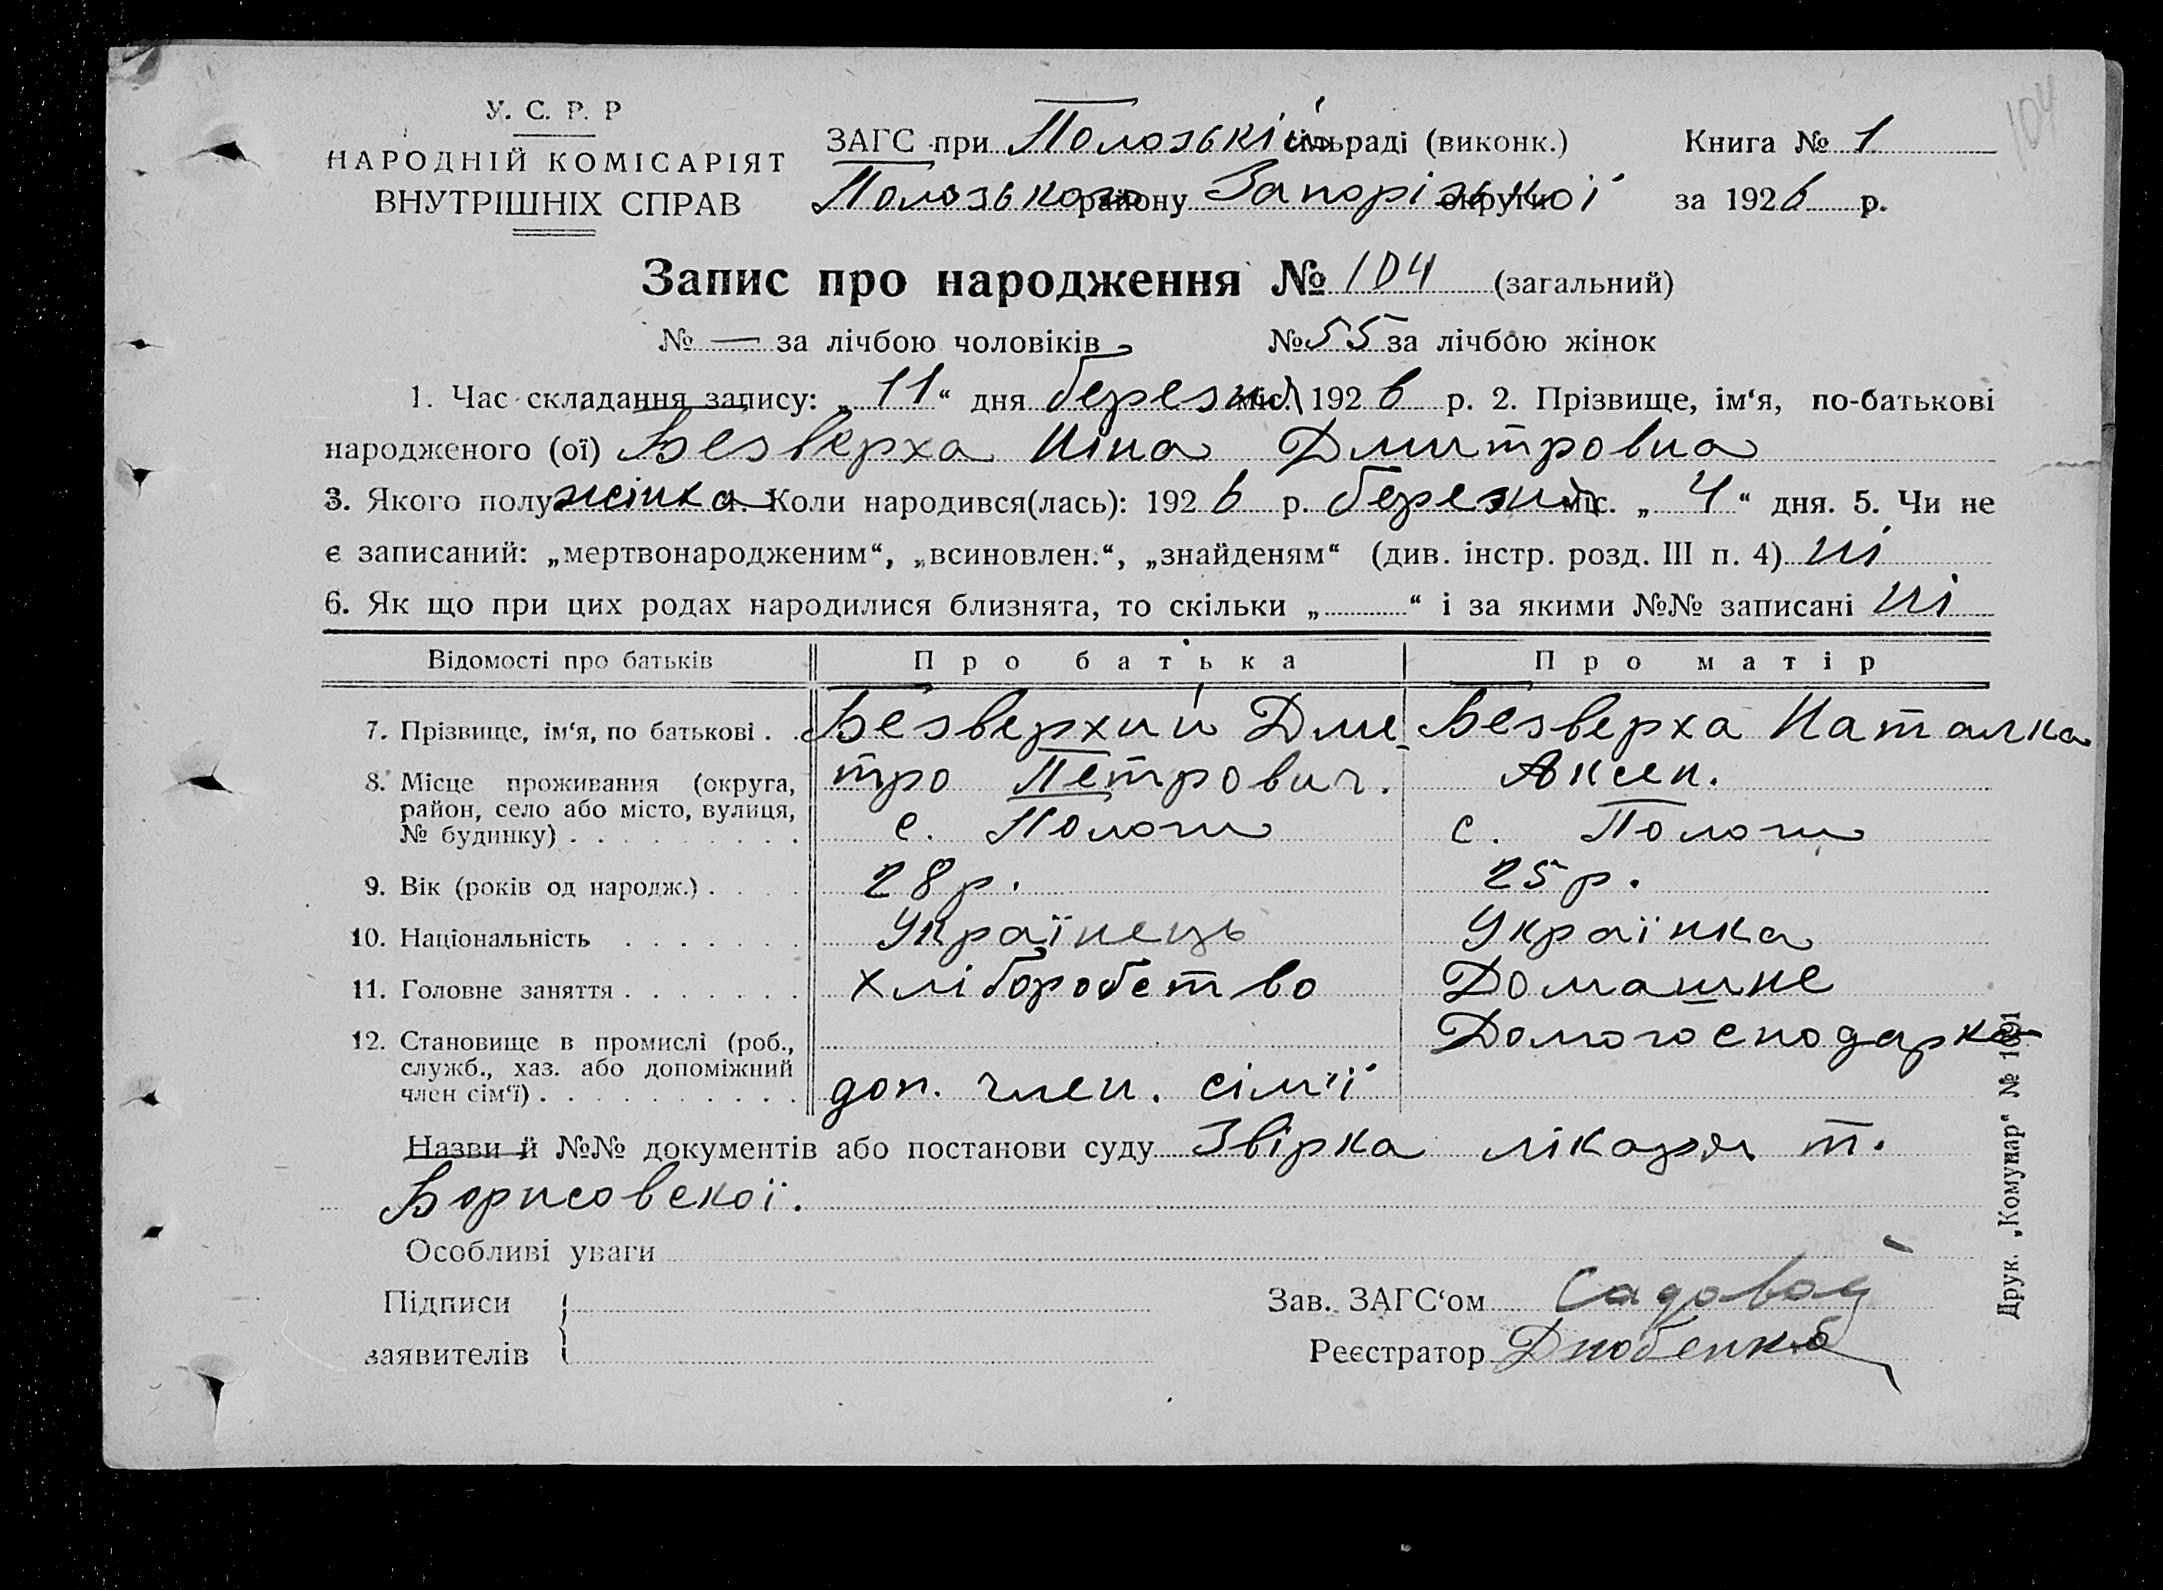 104
У. С. Р. Р
НАРОДНІЙ КОМІСАРІЯТ
ВНУТРІШНІХ СПРАВ
ЗАГС при Полозькій сільраді (виконк.) Книга № 1
Полозького району Запорізької округи за 1926 р.
Запис про народження № 104 (загальний)
№ — за лічбою чоловіків № 55 за лічбою жінок
1. Час складання запису: „ 11 “ дня березня міс. 1926 р. 2. Прізвище, ім‘я, по-батькові
народженого (ої) Безверха Ніна Дмитровна
3. Якого полу жінка Коли народився(лась): 1926 р. березня міс. „ 4 “ дня. 5. Чи не
є записаний: „мертвонародженим“, „всиновлен.“, „знайденям“ (див. інстр. розд. III п. 4) ні
6. Як що при цих родах народилися близнята, то скільки „ “ і за якими №№ записані ні
Відомості про батьків Про батька Про матір
7. Прізвище, ім‘я, по батькові . . Безверхий Дми- Безверха Наталка
тро Петрович. Аксен.
8. Місце проживання (округа,
район, село або місто, вулиця,
№ будинку) . . . . . . . . . с. Пологи с. Пологи
9. Вік (років од народж.) . . . . 28 р. 25 р.
10. Національність . . . . . . . Українець Українка
11. Головне заняття . . . . . . . хліборобство Домашнє
12. Становище в промислі (роб., Домогосподарка
служб., хаз. або допоміжний
член сім‘ї) . . . . . . . . . . доп. член. сім'ї
Назви й №№ документів або постанови суду Звірка лікаря т.
Борисовскої.
Особливі уваги
Підписи
заявителів
Зав. ЗАГС‘ом Садовой
Реєстратор
Друк. „Комунар“ №